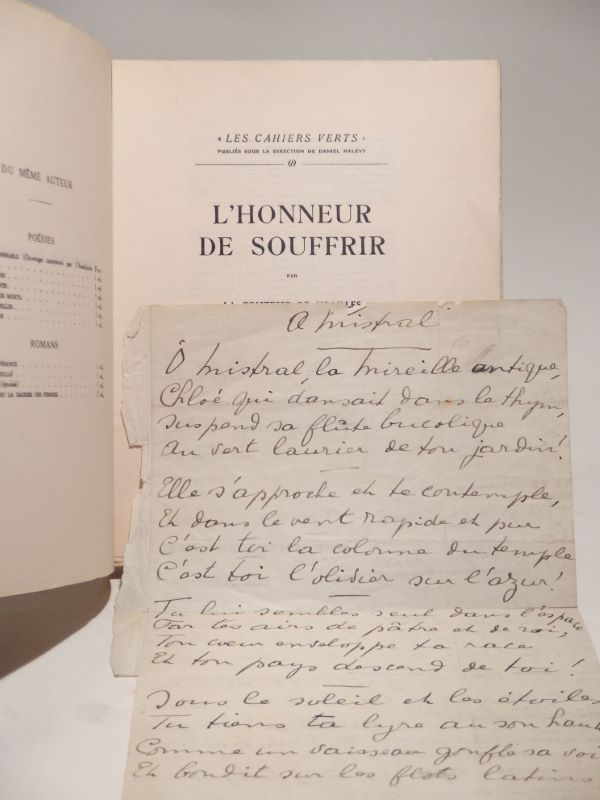 DU MÊME AUTEUR
POÉSIES
(Ouvrage couronné par l'Académie
ROMANS
« LES CAHIERS VERTS »
PUBLIÉS SOUS LA DIRECTION DE DANIEL HALÉVY
69
L'HONNEUR
DE SOUFFRIR
PAR
LA COMTESSE DE NOAILLES
A Mistral
Ô Mistral, la Mireille antique,
Chloé qui dansait dans le thym,
Suspend sa flûte bucolique
Au vert laurier de ton jardin!
Elle s'approche et te contemple,
Et dans le vent rapide et pur
C'est toi la colonne du temple
C'est toi l'olivier sur l'azur!
Tu lui sembles seul dans l'espace
Par tes airs de pâtre et de roi,
Ton cœur enveloppe ta race
Et ton pays descend de toi!
Sous le soleil et les étoiles
Tu tiens ta lyre au son haut
Comme un vaisseau gonfle sa voi
Et bondit sur les flots latins